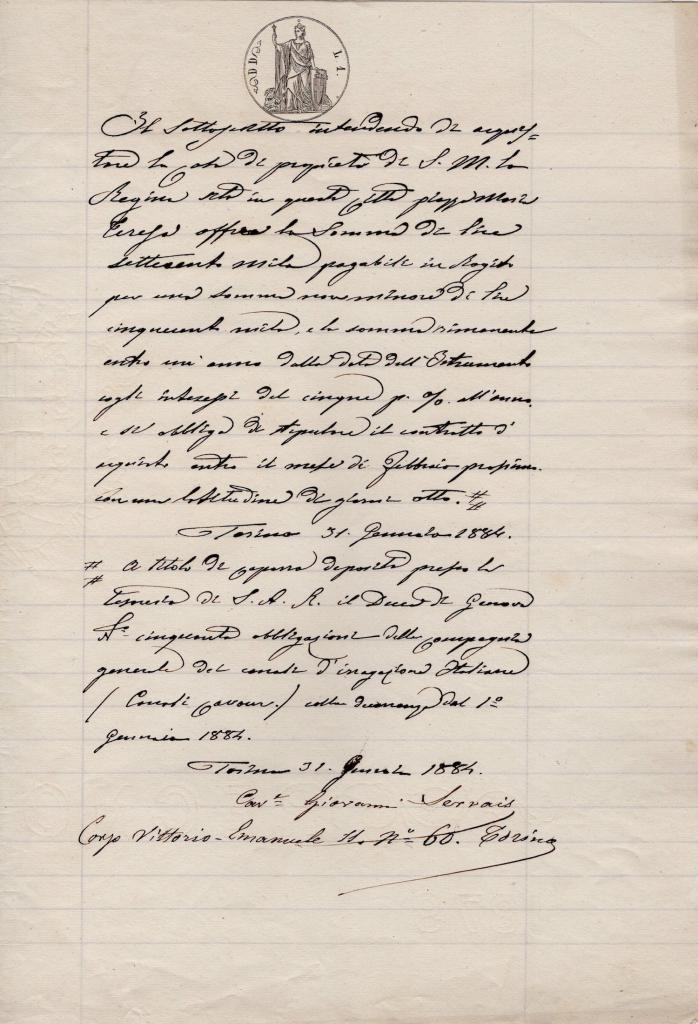 L. 1.
Il sottoscritto intendendo di acquis=
tare la casa di proprietà di S. M. la
Regina sita in questa città piazza Maria
Teresa offre la somma di lire
settecento mila pagabili in Rogito
per una somma non minore di lire
cinquecento mila, e la somma rimanente
entro un' anno dalla data dell' Istrumento
cogli interessi del cinque p. % all'anno,
e si obbliga di stipulare il contratto d'
acquisto entro il mese di Febbraio prossimo.
con una latitudine di giorni otto. #
Torino 31. Gennaio 1884.
# A titolo di caparra deposita presso la
tesoreria di S. A. R. il Duca di Genova
N.º cinquanta obbligazioni della compagnia
generale dei canali d'irrigazione Italiane
( Canali Cavour.) colla decorrenza dal 1º
Gennaio 1884.
Torino 31. Gennaio 1884.
Cav.re Giovanni Servais
Corso Vittorio-Emanuele II. Nº 66. Torino